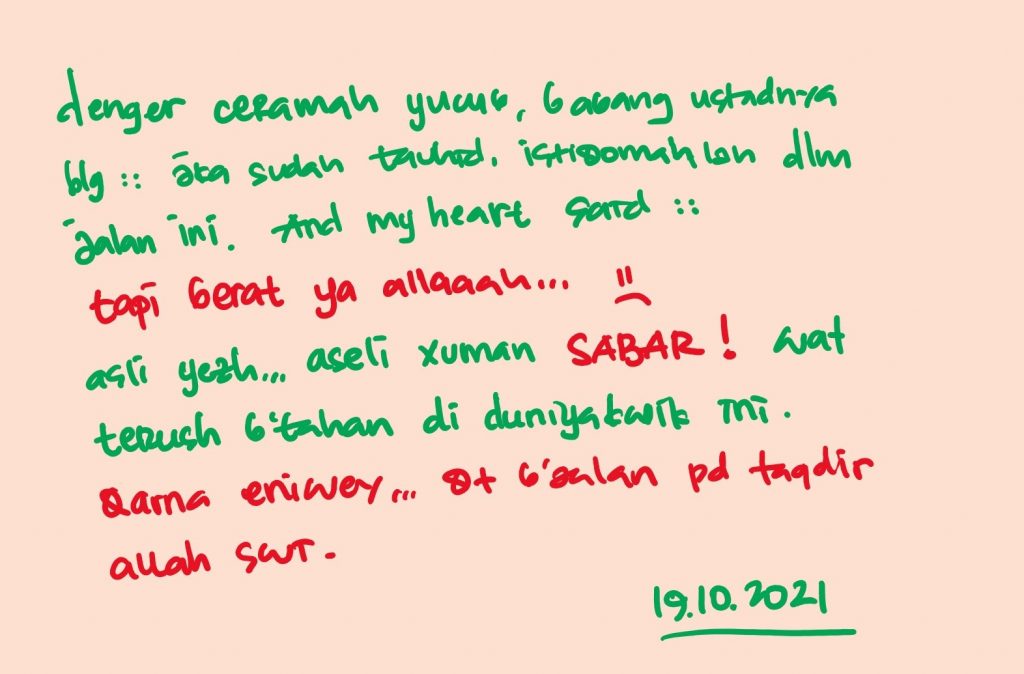 denger ceramah yucub, babang ustadnya
blg :: jka sudah tauhid. istiqomahlah dlm
jalan ini. And my heart said ::
tapi berat ya allaaah...
asli yezh... aseli xuman SABAR! wat
terush b'tahan di duniyatwik ini.
Qarna eniwey... qt b'jalan pd taqdir
allah swt.
19.10.2021